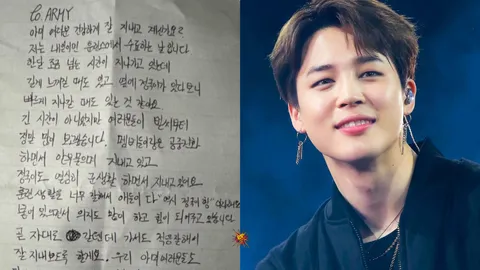 To. ARMY
아미 여러분 건강하게 잘 지내고 계신가요?
저는 내일이면 훈련소에서 수료하는 날입니다
한달 조금 넘는 시간이 지나가고 있는데
길게 느껴질 때도 있고 옆에 정국이가 있다보니
빠르게 지나갈 때도 있는 것 같아요
긴 시간이 아니었지만 여러분들이
정말 많이 보고싶습니다. 멤버들이랑은
하면서 안부 물으며 지내고 있고
정국이도 열심히 군생활 하면서 지내고 있어요
훈련 생활을 너무 잘해서 애들이 다 "역시 정국이 형"
붙어 있으면서 의지도 많이 하고 힘이 되어주고
곧 자대로 갈텐데 가서도 적응 잘해서
잘 지내보도록 할게요. 우리 아미여러분들도